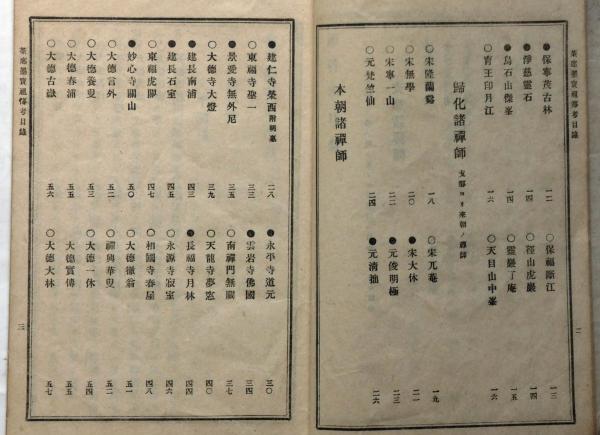 茶席墨寳祖傳考目錄
●保寧茂古林 一二
○保福斷江 一三
●淨慈靈石 一四
○徑山虎巖 一四
●烏石山傑峯 一四
○靈巖了庵 一五
○育王印月江 一六
○天目山中峯 一六
歸化諸禪師
○宋隆蘭谿 一八
○宋兀菴 一九
○宋無學 二〇
●宋大休 二一
○宋寧一山 二二
○元俊明極 二三
○元梵竺仙 二四
●元清拙 二六
本朝諸禪師
二
●建仁寺榮西 附明惠 二八
●永平寺道元 三〇
○東福寺聖一 三三
●雲岩寺佛國 三四
●景愛寺無外尼 三五
○南禪門無關 三七
○大德寺大燈 三九
○天龍寺夢窓 四〇
●建長南浦 四三
●長福寺月林 四四
●建長石室 四五
○永源寺寂室 四六
○東福虎關 四七
○相國寺春屋 四八
●妙心寺關山 五〇
○大德徹翁 五一
○大德言外 五二
○禪興華叟 五二
○大德養叟 五三
○大德一休 五四
○大德春浦 五五
大德實傳 五五
○大德古嶽 五六
●大德大林 五七
茶席墨寳祖傳考目錄
三